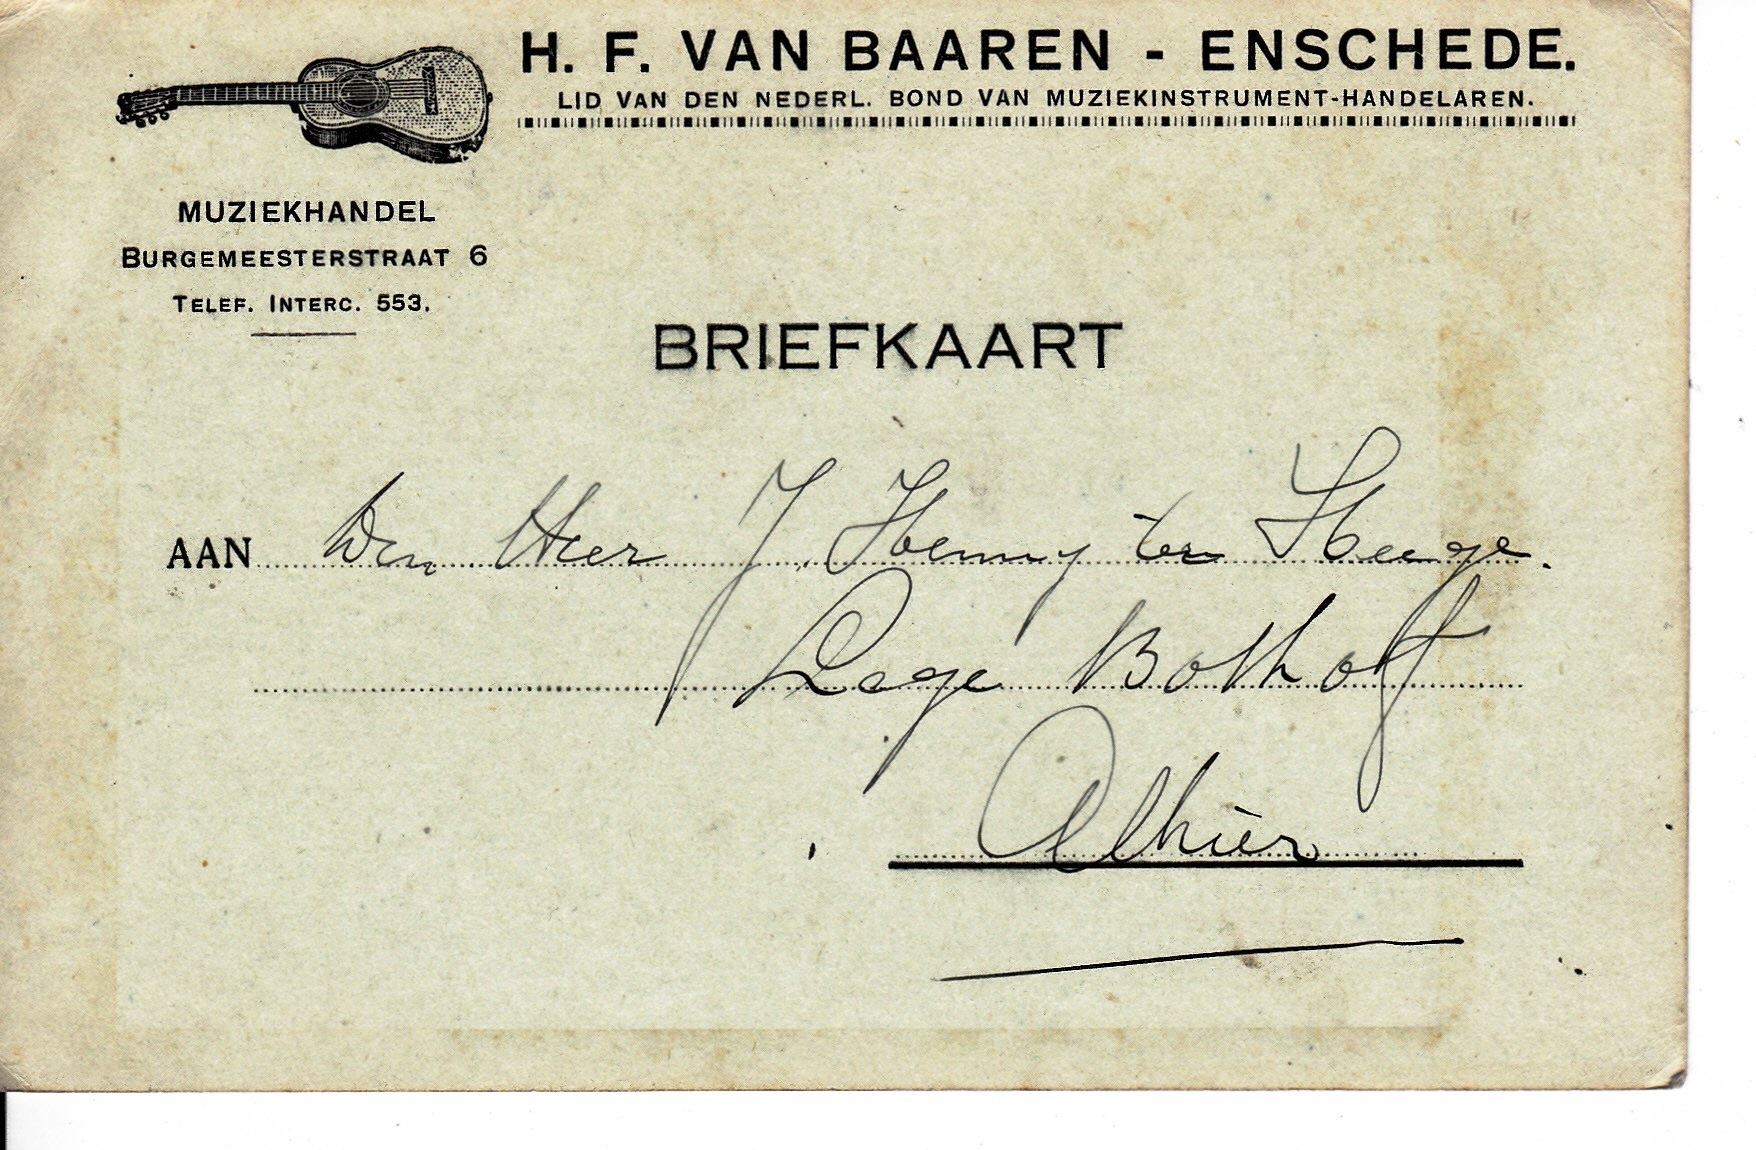 H. F. VAN BAAREN - ENSCHEDE.
LID VAN DEN NEDERL. BOND VAN MUZIEKINSTRUMENT-HANDELAREN.
MUZIEKHANDEL
BURGEMEESTERSTRAAT 6
TELEF. INTERC. 553.
BRIEFKAART
AAN Den Heer J. Henny ter Heege.
Lage Bothof
Alhier